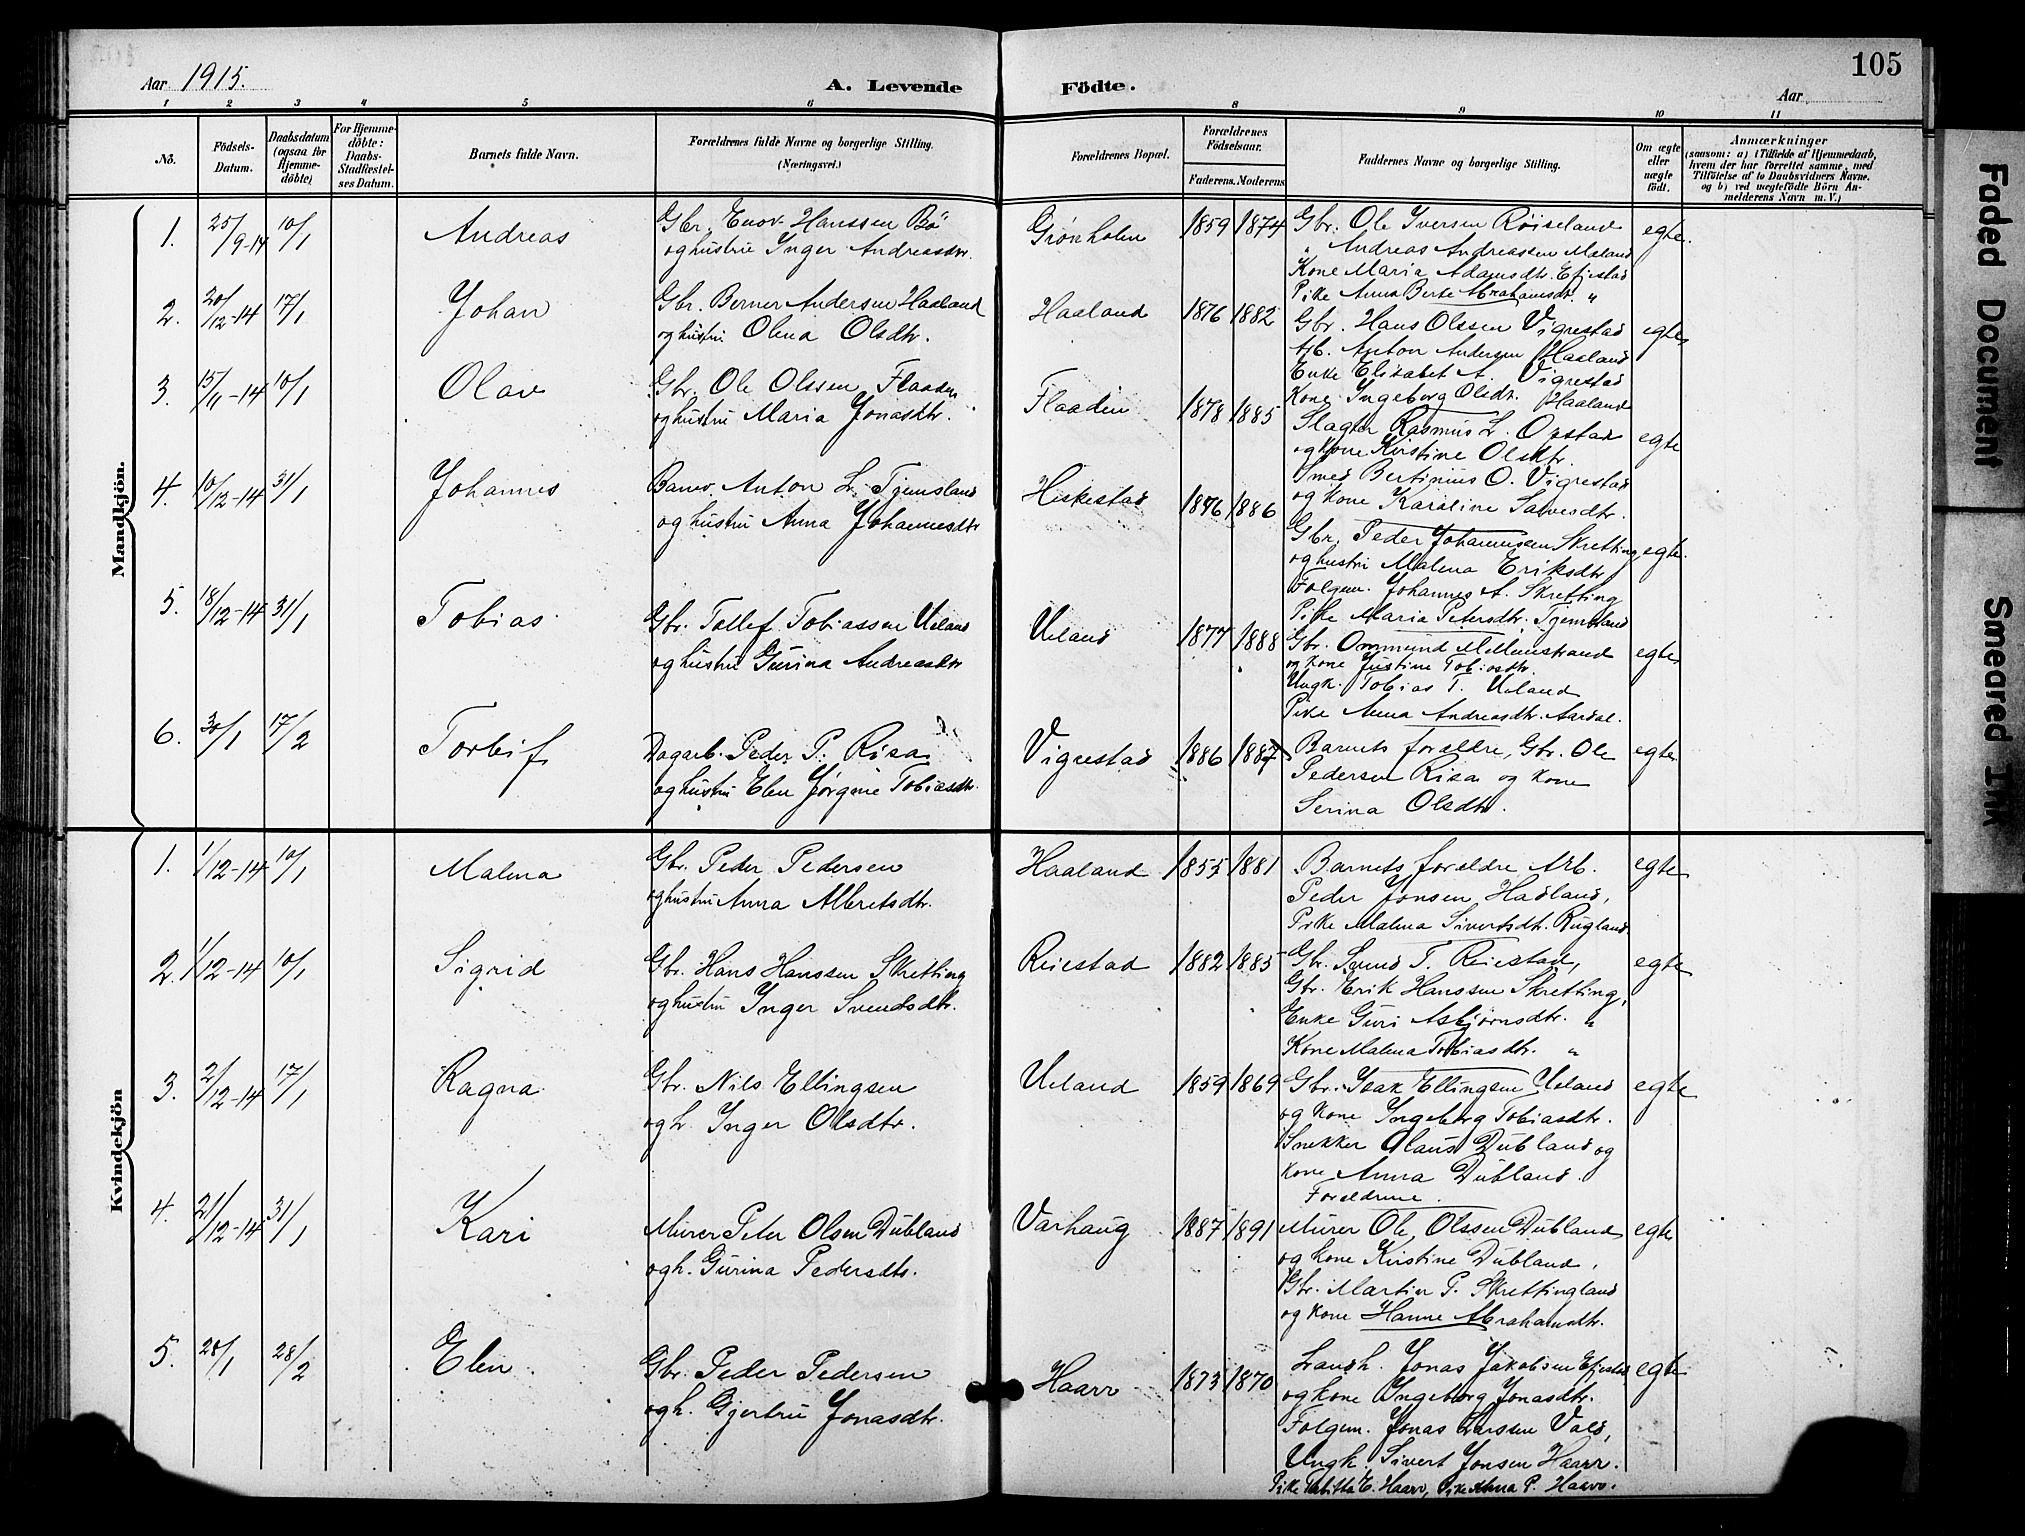 105
Aar 1915.
A. Levende Födte.
Aar
1 2 3 4 5 6 8 9 10 11
No.
Födsels-Datum.
Daabsdatum (ogsaa for Hjemme-döbte)
For Hjemme-döbte: Daabs-Stadfæstel-ses Datum.
Barnets fulde Navn.
Forældrenes fulde Navne og borgerlige Stilling.
(Næringsvei.)
Forældrenes Bopæl.
Forældrenes Födselsaar.
Faderens. Moderens
Faddernes Navne og borgerlige Stilling.
Om ægte eller uægte födt.
Anmærkninger
(saasom: a) i Tilfælde af Hjemmedaab, hvem der har forrettet samme, med Tilföielse af to Daabsvidners Navne, og b) ved uægtefödte Börn An-melderens Navn m. V.)
Mandkjön.
1. 25/9-14 10/1 Andreas
Gbr. Enov Hanssen Bö
og hustru Inger Andreasdtr.
Grönholen 1859 1874
Gbr. Ole Iversen Röiseland
" Andreas Andreassen Maland
Kone Maria Adamsdtr. Efjestad
Pike Anna Berte Abrahamsdtr. "
egte.
2. 20/12-14 17/1 Johan
Gbr. Berner Andersen Haaland
og hustru Olena Olsdtr.
Haaland 1876 1882
Gbr. Hans Olssen Vigrestad
Arb. Anton Andersen Haaland
Enke Elisabet A. Vigrestad
Kone Ingeborg Olsdt. Haaland
egte
3. 15/11-14 10/1 Olav
Gbr. Ole Olssen Flaaden
og hustru Maria Jonasdtr.
Flaaden 1878 1885
Slagter Rasmus L. Opstad
og kone Kirstine Olsdtr.
Smed Bertinius O. Vigrestad
og kone Karoline Salvesdtr.
egte
4. 10/12-14 31/1 Johannes
Banev. Anton L. Tjemsland
og hustru Anna Johannesdtr
Heskestad 1876 1886
Gbr. Peder Johannessen Skretting
og hustru Malena Eriksdtr
Folgem. Johannes A. Skretting
Pike Maria Petersdtr. Tjemsland
egte.
5. 18/12-14 31/1 Tobias
Gbr. Tollef Tobiassen Ueland
og hustru Gurina Andreasdtr
Ueland 1877 1888
Gbr. Ommund Mellemstrand
og kone Justine Tobiasdtr.
Ungk. Tobias T. Ueland
Pike Anna Andreasdtr. Aardal.
egte
6. 30/1 17/2 Torleif
Dagarb. Peder P. Risa
og hustru Elen Jørgine Tobiasdtr.
Vigrestad 1886 1887
Barnets forældre, Gbr. Ole
Pedersen Risa og kone
Serina Olsdtr.
egte
Kvindekjön
1. 1/12-14 10/1 Malena
Gbr. Peder Pedersen
og hustru Anna Albretsdtr.
Haaland 1855 1881
Barnets forældre Arb.
Peder Jonsen Hadland,
Pike Malena Sivertsdtr. Rugland.
egte
2. 1/12-14 10/1 Sigrid
Gbr. Hans Hanssen Skretting
og hustru Inger Svendsdtr.
Reiestad 1882 1885
Gbr. Svend T. Reiestad,
Gbr. Erik Hanssen Skretting,
Enke Guri Asbjørnsdtr. "
Kone Malena Tobiasdtr. "
egte
3. 2/12-14 17/1 Ragna
Gbr. Nils Ellingsen
og h. Inger Olsdtr.
Ueland 1859 1869
Gbr. Isak Ellingsen Ueland
og kone Ingeborg Tobiasdtr.
Snekker Olaus Dubland og
kone Anna Dubland.
Forældrene.
egte
4. 21/12-14 31/1 Kari
Murer Peter Olsen Dubland
og h. Gurina Pedersdtr.
Varhaug 1887 1891
Murer Ole Olssen Dubland
og kone Kirstine Dubland,
Gbr. Martin P. Skrettingland
og kone Hanne Abrahamsdtr.
egte
5. 28/1 28/2 Elen.
Gbr. Peder Pedersen
og h. Gjertru Jonasdtr.
Haarr 1873 1870
Landh. Jonas Jakobsen Efjestad
og kone Ingeborg Jonasdtr.
Folgem. Jonas Larssen Vold,
Ungk. Sivert Jonsen Haarr.
Pike Tabitta E. Haarr, Pike Anna P. Haarr.
egte
Faded Document
Smeared Ink